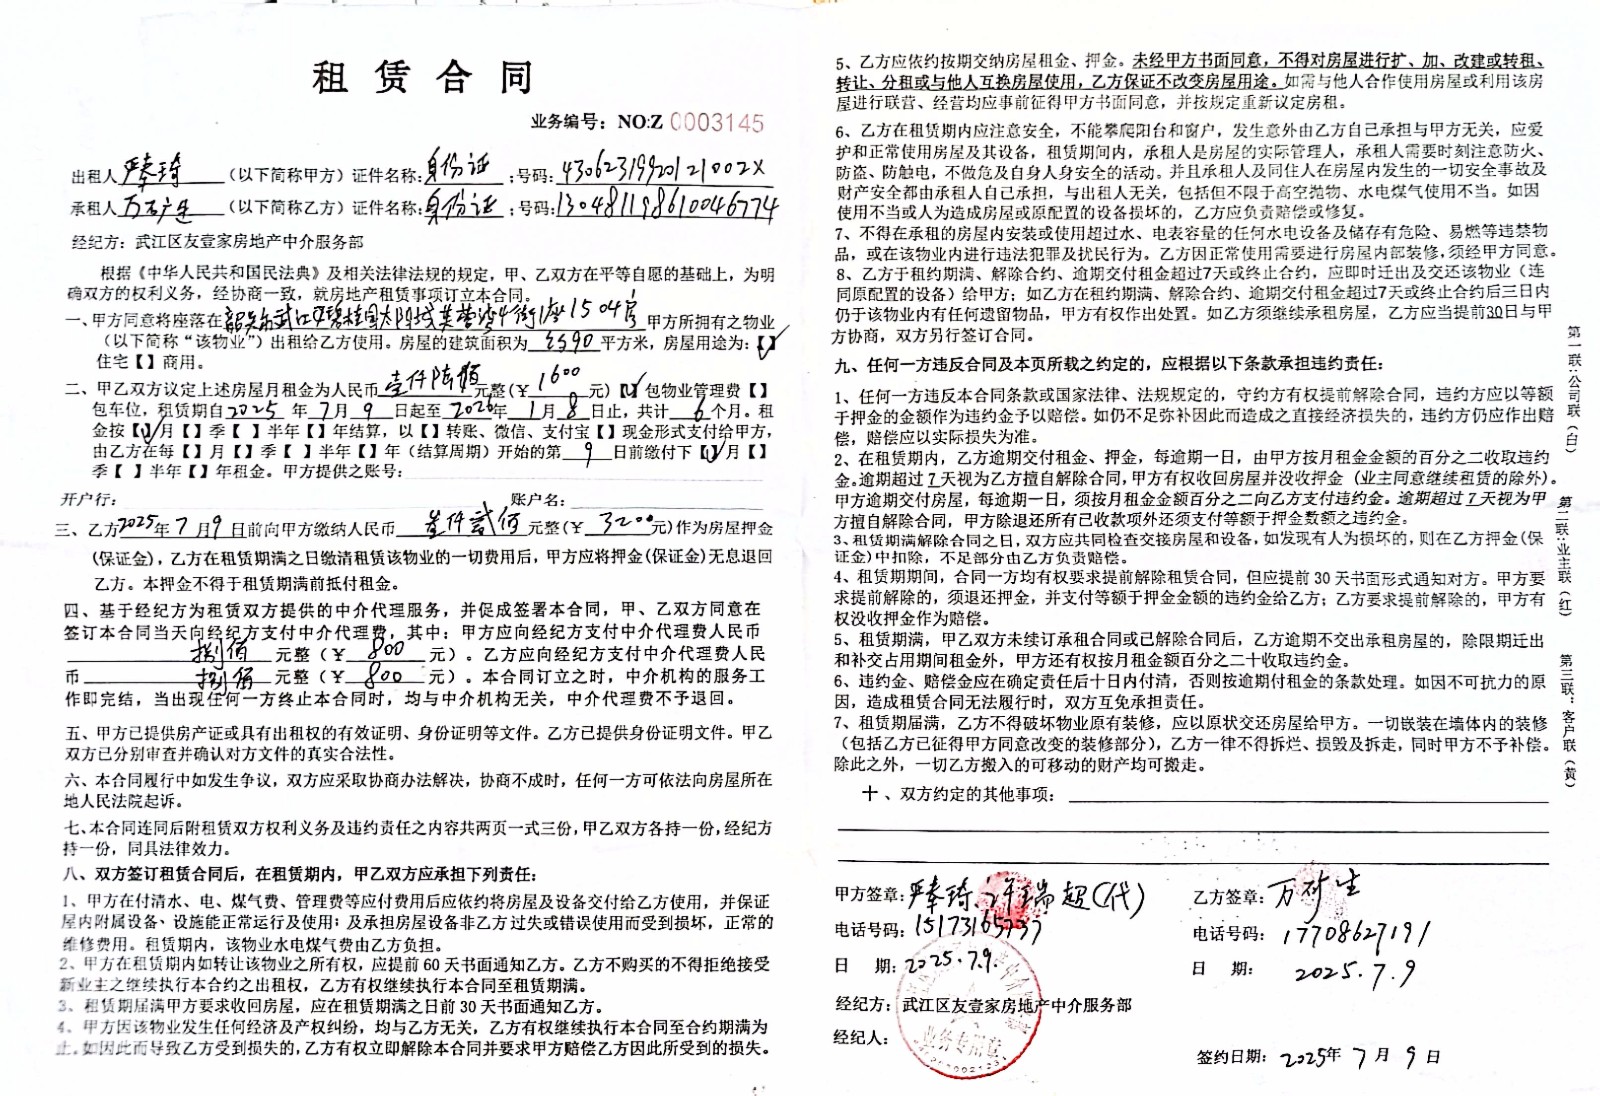 租赁合同
业务编号：NO:Z 0003145
出租人 严奉琦 （以下简称甲方）证件名称：身份证；号码：43062319920121002X
承租人 （以下简称乙方）证件名称：身份证；号码：130481198610046774
经纪方：武江区友壹家房地产中介服务部
根据《中华人民共和国民法典》及相关法律法规的规定，甲、乙双方在平等自愿的基础上，为明
确双方的权利义务，经协商一致，就房地产租赁事项订立本合同。
一、甲方同意将座落在韶关市武江区碧桂园太阳城芙蓉湾4街1座1504房甲方所拥有之物业
（以下简称“该物业”）出租给乙方使用。房屋的建筑面积为 平方米，房屋用途为：【✓】
住宅【】商用。
二、甲乙双方议定上述房屋月租金为人民币 壹仟陆佰 元整（￥ 1600 元）【✓】包物业管理费【】
包车位，租赁期自2025年7月9日起至2026年1月8日止，共计 6 个月。租
金按【✓】月【】季【】半年【】年结算，以【】转账、微信、支付宝【】现金形式支付给甲方，
由乙方在每【】月【】季【】半年【】年（结算周期）开始的第 9 日前缴付下【✓】月【】
季【】半年【】年租金。甲方提供之账号：
开户行： 账户名：
三、乙方2025年7月9日前向甲方缴纳人民币 叁仟贰佰 元整（￥ 3200元）作为房屋押金
(保证金)，乙方在租赁期满之日缴清租赁该物业的一切费用后，甲方应将押金(保证金)无息退回
乙方。本押金不得于租赁期满前抵付租金。
四、基于经纪方为租赁双方提供的中介代理服务，并促成签署本合同，甲、乙双方同意在
签订本合同当天向经纪方支付中介代理费，其中：甲方应向经纪方支付中介代理费人民币
捌佰 元整（￥ 800 元）。乙方应向经纪方支付中介代理费人民
币 捌佰 元整（￥ 800 元）。本合同订立之时，中介机构的服务工
作即完结，当出现任何一方终止本合同时，均与中介机构无关，中介代理费不予退回。
五、甲方已提供房产证或具有出租权的有效证明、身份证明等文件。乙方已提供身份证明文件。甲乙
双方已分别审查并确认对方文件的真实合法性。
六、本合同履行中如发生争议，双方应采取协商办法解决，协商不成时，任何一方可依法向房屋所在
地人民法院起诉。
七、本合同连同后附租赁双方权利义务及违约责任之内容共两页一式三份，甲乙双方各持一份，经纪方
持一份，同具法律效力。
八、双方签订租赁合同后，在租赁期内，甲乙双方应承担下列责任：
1、甲方在付清水、电、煤气费、管理费等应付费用后应依约将房屋及设备交付给乙方使用，并保证
屋内附属设备、设施能正常运行及使用；及承担房屋设备非乙方过失或错误使用而受到损坏，正常的
维修费用。租赁期内，该物业水电煤气费由乙方负担。
2、甲方在租赁期内如转让该物业之所有权，应提前60天书面通知乙方。乙方不购买的不得拒绝接受
新业主之继续执行本合约之出租权，乙方有权继续执行本合同至租赁期满。
3、租赁期届满甲方要求收回房屋，应在租赁期满之日前30天书面通知乙方。
4、甲方因该物业发生任何经济及产权纠纷，均与乙方无关，乙方有权继续执行本合同至合约期满为
止。如因此而导致乙方受到损失的，乙方有权立即解除本合同并要求甲方赔偿乙方因此所受到的损失。
5、乙方应依约按期交纳房屋租金、押金。未经甲方书面同意，不得对房屋进行扩、加、改建或转租、
转让、分租或与他人互换房屋使用，乙方保证不改变房屋用途。如需与他人合作使用房屋或利用该房
屋进行联营、经营均应事前征得甲方书面同意，并按规定重新议定房租。
6、乙方在租赁期内应注意安全，不能攀爬阳台和窗户，发生意外由乙方自己承担与甲方无关，应爱
护和正常使用房屋及其设备，租赁期间内，承租人是房屋的实际管理人，承租人需要时刻注意防火、
防盗、防触电，不做危及自身人身安全的活动。并且承租人及同住人在房屋内发生的一切安全事故及
财产安全都由承租人自己承担，与出租人无关，包括但不限于高空抛物、水电煤气使用不当。如因
使用不当或人为造成房屋或原配置的设备损坏的，乙方应负责赔偿或修复。
7、不得在承租的房屋内安装或使用超过水、电表容量的任何水电设备及储存有危险、易燃等违禁物
品，或在该物业内进行违法犯罪及扰民行为。乙方因正常使用需要进行房屋内部装修，须经甲方同意。
8、乙方于租约期满、解除合约、逾期交付租金超过7天或终止合约，应即时迁出及交还该物业（连
同原配置的设备）给甲方；如乙方在租约期满、解除合约、逾期交付租金超过7天或终止合约后三日内
仍于该物业内有任何遗留物品，甲方有权作出处置。如乙方须继续承租房屋，乙方应当提前30日与甲
方协商，双方另行签订合同。
九、任何一方违反合同及本页所载之约定的，应根据以下条款承担违约责任：
1、任何一方违反本合同条款或国家法律、法规规定的，守约方有权提前解除合同，违约方应以等额
于押金的金额作为违约金予以赔偿。如仍不足弥补因此而造成之直接经济损失的，违约方仍应作出赔
偿，赔偿应以实际损失为准。
2、在租赁期内，乙方逾期交付租金、押金，每逾期一日，由甲方按月租金金额的百分之二收取违约
金。逾期超过7天视为乙方擅自解除合同，甲方有权收回房屋并没收押金（业主同意继续租赁的除外）。
甲方逾期交付房屋，每逾期一日，须按月租金金额百分之二向乙方支付违约金。逾期超过7天视为甲
方擅自解除合同，甲方除退还所有已收款项外还须支付等额于押金数额之违约金。
3、租赁期满解除合同之日，双方应共同检查交接房屋和设备，如发现有人为损坏的，则在乙方押金(保
证金)中扣除，不足部分由乙方负责赔偿。
4、租赁期期间，合同一方均有权要求提前解除租赁合同，但应提前30天书面形式通知对方。甲方要
求提前解除的，须退还押金，并支付等额于押金金额的违约金给乙方；乙方要求提前解除的，甲方有
权没收押金作为赔偿。
5、租赁期满，甲乙双方未续订承租合同或已解除合同后，乙方逾期不交出承租房屋的，除限期迁出
和补交占用期间租金外，甲方还有权按月租金额百分之二十收取违约金。
6、违约金、赔偿金应在确定责任后十日内付清，否则按逾期付租金的条款处理。如因不可抗力的原
因，造成租赁合同无法履行时，双方互免承担责任。
7、租赁期届满，乙方不得破坏物业原有装修，应以原状交还房屋给甲方。一切嵌装在墙体内的装修
（包括乙方已征得甲方同意改变的装修部分），乙方一律不得拆烂、损毁及拆走，同时甲方不予补偿。
除此之外，一切乙方搬入的可移动的财产均可搬走。
十、双方约定的其他事项：
甲方签章：严奉琦、许瑞超(代)
电话号码：15173165737
日 期：2025.7.9.
经纪方：武江区友壹家房地产中介服务部
经纪人：
业务专用章
乙方签章：
电话号码：17708627191
日 期：2025.7.9
签约日期：2025年7月9日
第一联：公司联（白）
第二联：业主联（红）
第三联：客户联（黄）